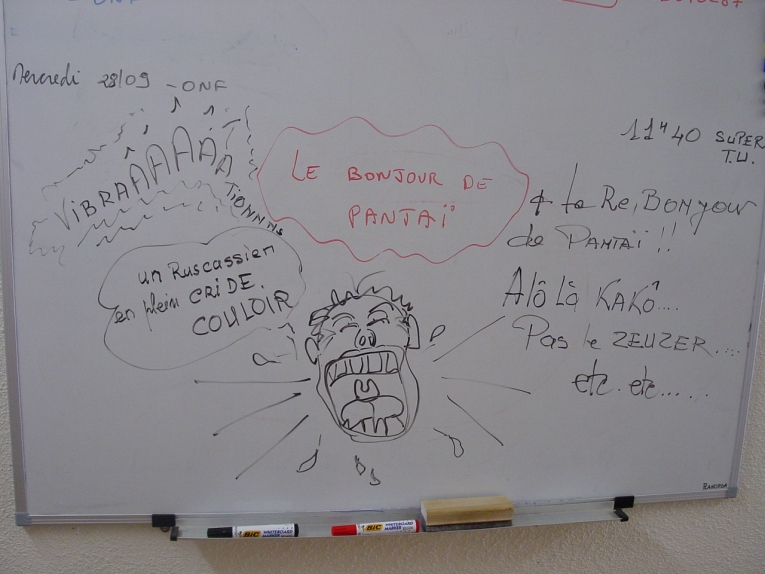 ONF
Mercredi 28/09 - ONF
ViBRAAAAAATIONNNS
LE BONJOUR DE
PANTAÏ
un Ruscassier
en plein CRIDE.
COULOIR
11H40 SUPER
T.U.
+ le Re, BONjour
de PANTAÏ !!
Alô Lô KAKÔ....
Pas le ZEUZER.....
etc. etc......
BiC WHITEBOARD
MARKER
BiC WHITEBOARD
MARKER